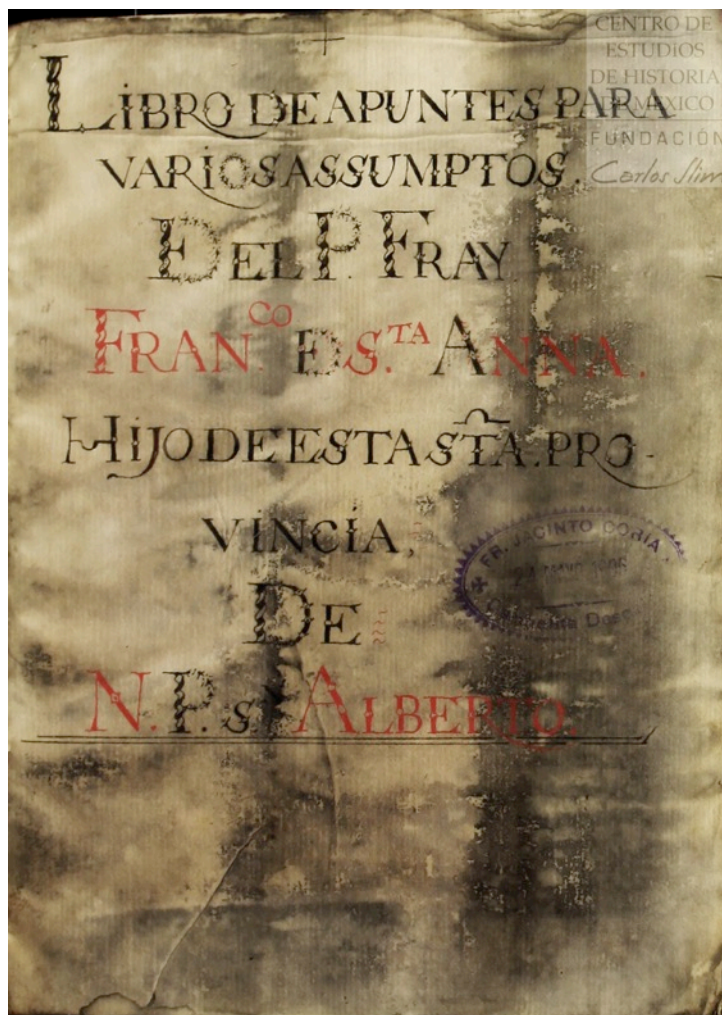 CENTRO DE
ESTUDIOS
DE HISTORIA
DE MÉXICO
FUNDACIÓN
Carlos Slim
LIBRO DE APUNTES PARA
VARIOS ASSUMPTOS.
DEL P. FRAY
FRAN.CO D S.TA ANNA.
HIJO DE ESTA STA. PRO-
VINCIA,
DE
N. P. Sn ALBERTO.
FR. JACINTO CORIA